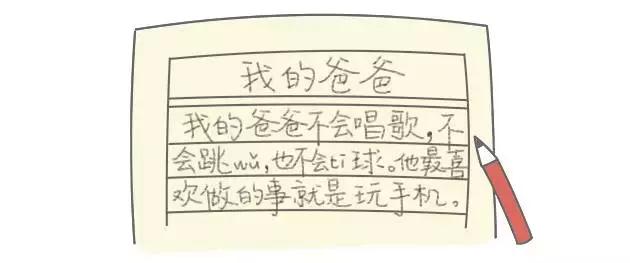 我的爸爸
我的爸爸不会唱歌,不
会跳wǔ,也不会tī球。他最喜
欢做的事就是玩手机。